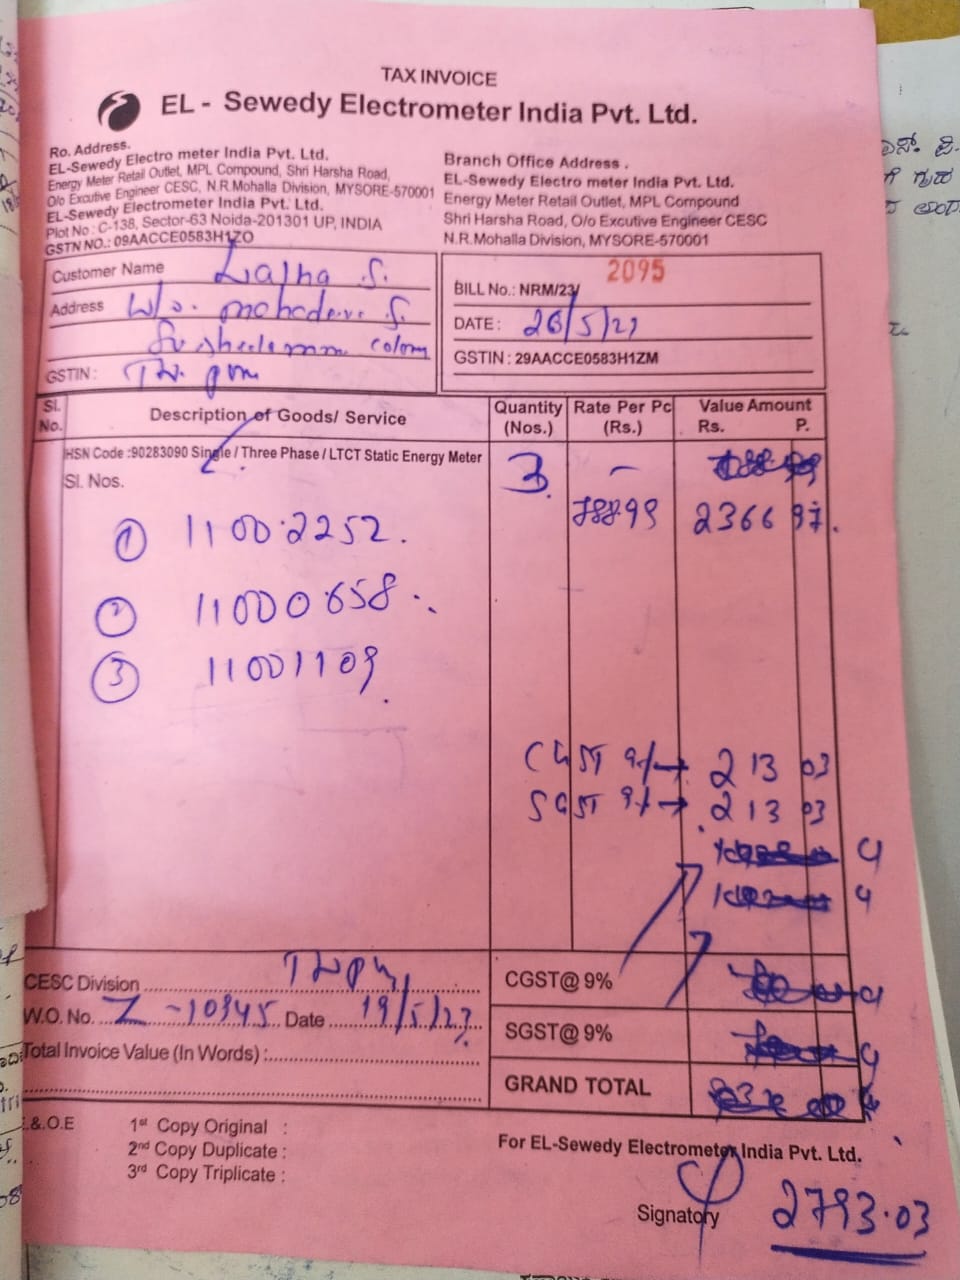 TAX INVOICE
EL - Sewedy Electrometer India Pvt. Ltd.
Ro. Address.
EL-Sewedy Electro meter India Pvt. Ltd.
Energy Meter Retail Outlet, MPL Compound, Shri Harsha Road,
O/o Excutive Engineer CESC, N.R.Mohalla Division, MYSORE-570001
EL-Sewedy Electrometer India Pvt. Ltd.
Plot No : C-138, Sector-63 Noida-201301 UP, INDIA
GSTN NO.: 09AACCE0583H1ZO
Branch Office Address .
EL-Sewedy Electro meter India Pvt. Ltd.
Energy Meter Retail Outlet, MPL Compound
Shri Harsha Road, O/o Excutive Engineer CESC
N.R.Mohalla Division, MYSORE-570001
Customer Name Latha S.
Address W/o. mahadeva S.
colony
GSTIN :
2095
BILL No.: NRM/23/
DATE : 26/5/23
GSTIN : 29AACCE0583H1ZM
Sl. No. Description of Goods/ Service Quantity (Nos.) Rate Per Pc (Rs.) Value Amount Rs. P.
HSN Code :90283090 Single / Three Phase / LTCT Static Energy Meter 3 -
Sl. Nos.
788.99 2366 97.
① 11002252.
② 11000658.
③ 11001109
CGST 9% → 213 03
SGST 9% → 213 03
CESC Division
CGST@ 9%
W.O. No. Z-10945 Date 19/5/23
SGST@ 9%
Total Invoice Value (In Words) :
GRAND TOTAL
E.&.O.E
1st Copy Original :
2nd Copy Duplicate :
3rd Copy Triplicate :
For EL-Sewedy Electrometer India Pvt. Ltd.
Signatory
2793.03